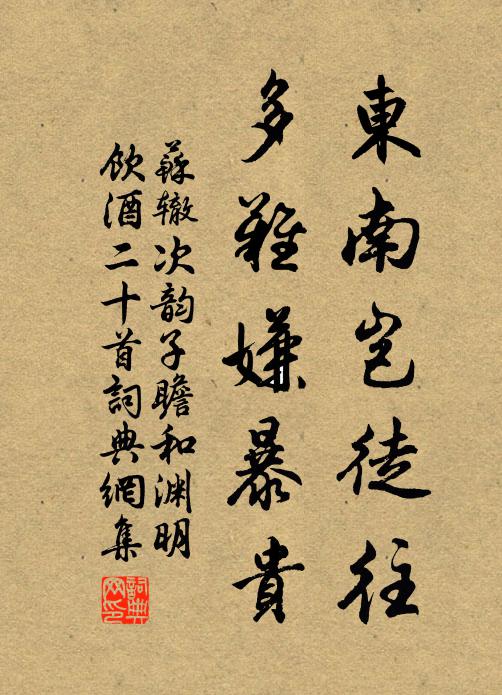 東南岂徒往
多難嫌暴貴
蘇辙次韵子瞻和渊明
飲酒二十首詞典網集
詞典网印